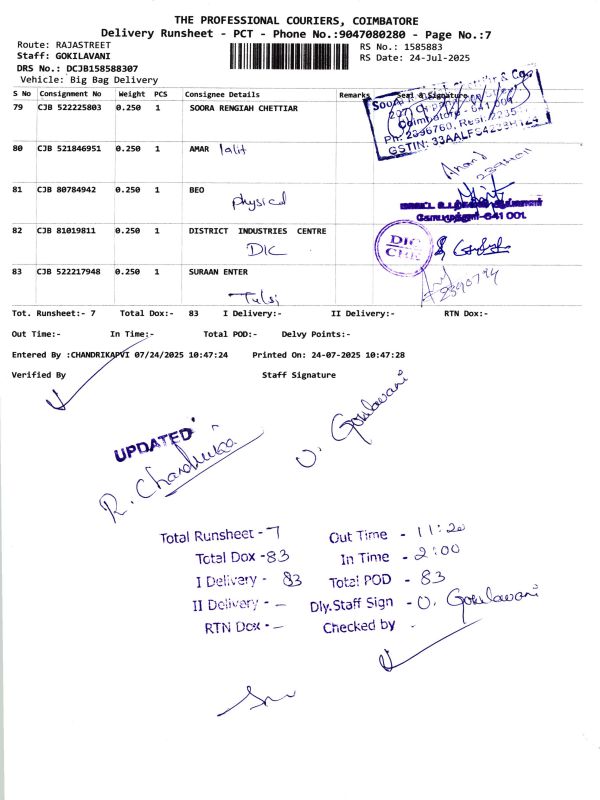 THE PROFESSIONAL COURIERS, COIMBATORE
Delivery Runsheet - PCT - Phone No.:9047080280 - Page No.:7
Route: RAJASTREET
Staff: GOKILAVANI
DRS No.: DCJB158588307
Vehicle: Big Bag Delivery
RS No.: 1585883
RS Date: 24-Jul-2025
S No Consignment No Weight PCS Consignee Details Remarks Seal & Signature
79 CJB 522225803 0.250 1 SOORA RENGIAH CHETTIAR
80 CJB 521846951 0.250 1 AMAR lalit
Anand
81 CJB 80784942 0.250 1 BEO
physical
82 CJB 81019811 0.250 1 DISTRICT INDUSTRIES CENTRE
DIC
DIC
CBE
83 CJB 522217948 0.250 1 SURAAN ENTER
Tulsi
2390794
Tot. Runsheet:- 7 Total Dox:- 83 I Delivery:- II Delivery:- RTN Dox:-
Out Time:- In Time:- Total POD:- Delvy Points:-
Entered By :CHANDRIKAPVI 07/24/2025 10:47:24 Printed On: 24-07-2025 10:47:28
Verified By Staff Signature
UPDATED
R. Chandrika
V. Gokilavani
Total Runsheet - 7 Out Time - 11:20
Total Dox - 83 In Time - 2:00
I Delivery - 83 Total POD - 83
II Delivery - — Dly.Staff Sign - V. Gokilavani
RTN Dox - — Checked by -